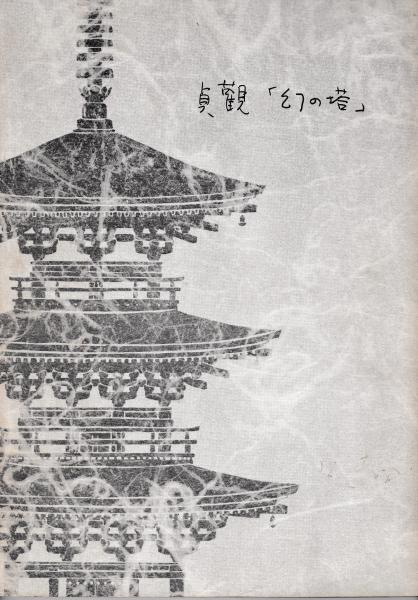 貞觀「幻の塔」